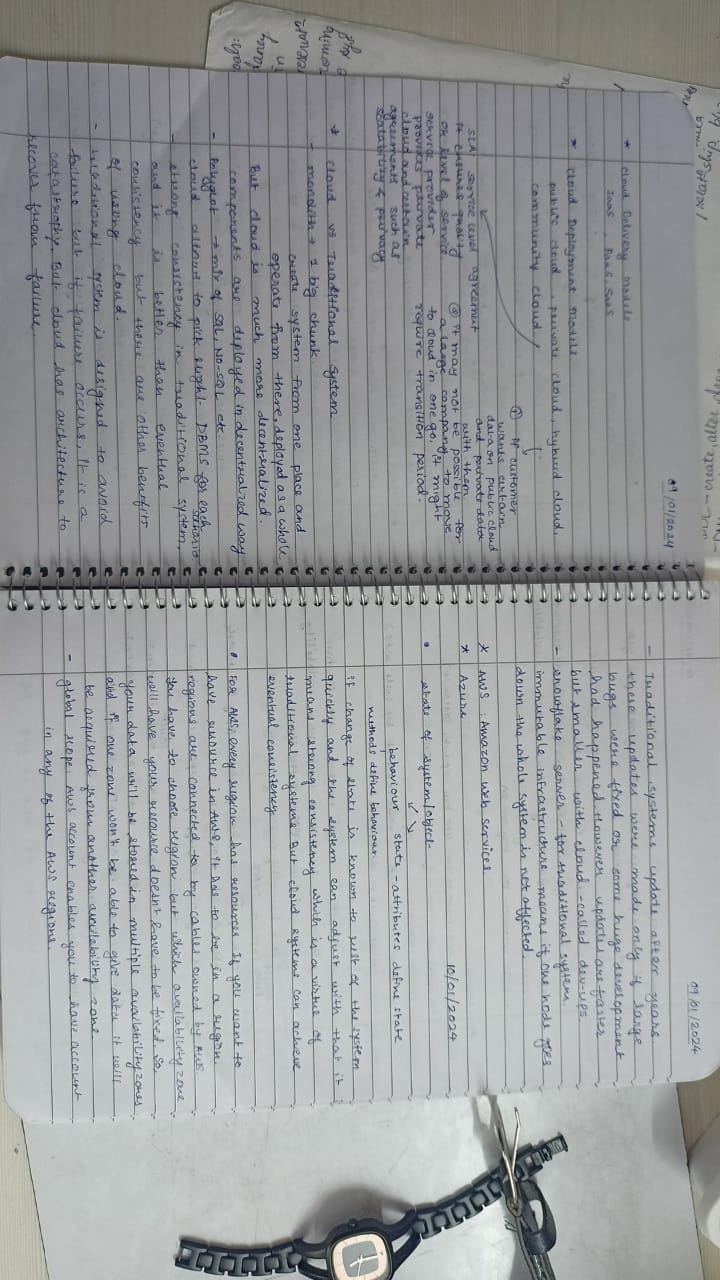 09/01/2024
* Cloud Delivery Models
IaaS, PaaS, SaaS
* Cloud Deployment Models
public cloud, private cloud, hybrid cloud,
community cloud
SLA service level agreement
It ensures quality
or level of service
service provider
provides
cloud and
agreements such as
scalability & privacy
① If customer
wants certain
data on public cloud
and private data
with them
② It may not be possible for
a large company to move
to cloud in one go, it might
require transition period.
* Cloud vs Traditional System
- monolith → 1 big chunk
create system from one place and
operate from there, deployed as a whole
But cloud is much more decentralized.
components are deployed in decentralized way
- Polyglot → mix of SQL, No-SQL etc.
cloud allows to pick right DBMS for each
scenario
- strong consistency in traditional system,
and it is better than eventual
consistency but there are other benefits
of using cloud.
- traditional system is designed to avoid
failure but if failure occurs, it is a
catastrophy. But cloud has architecture to
recover from failure
09/01/2024
- Traditional systems update after years
these updates were made only if large
bugs were fixed or some huge development
had happened. However updates are faster
but smaller with cloud - called dev-ups.
- snowflake server - for traditional system.
immutable infrastructure means if one node goes
down the whole system is not affected.
10/01/2024
* AWS - Amazon web services
* Azure
• state of system/object-
behaviour state - attributes define state
methods define behaviour
if change of state is known to rest of the system
quickly and the system can adjust with that it
means strong consistency which is a virtue of
traditional systems. But cloud systems can achieve
eventual consistency
• For AWS, every region has resources. If you want to
have resource in AWS, it has to be in a region.
regions are connected to by cables owned by AWS
You have to choose region but which availability zone
will have your resource doesn't have to be fixed. So
your data will be stored in multiple availability zones
and if one zone won't be able to give data it will
be acquired from another availability zone
- global scope. AWS account enables you to have account
in any of the AWS regions.